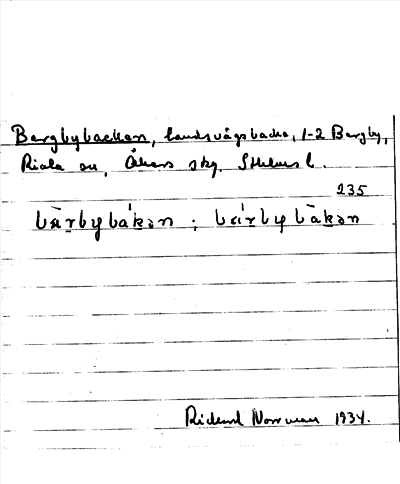 Bergbybacken, landsvägsbacke, 1-2 Bergby,
Riala sn, Åkers skg. Sthlms l.
235
bær̀bybákən ; bæŕbybàkən
Rickard Norrman 1934.